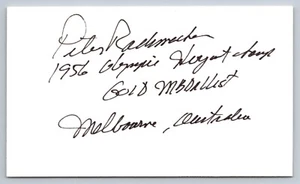 Pete Rademacher
1956 Olympic Hvywt champ
GOLD MEDALLIST
Melbourne, Australia